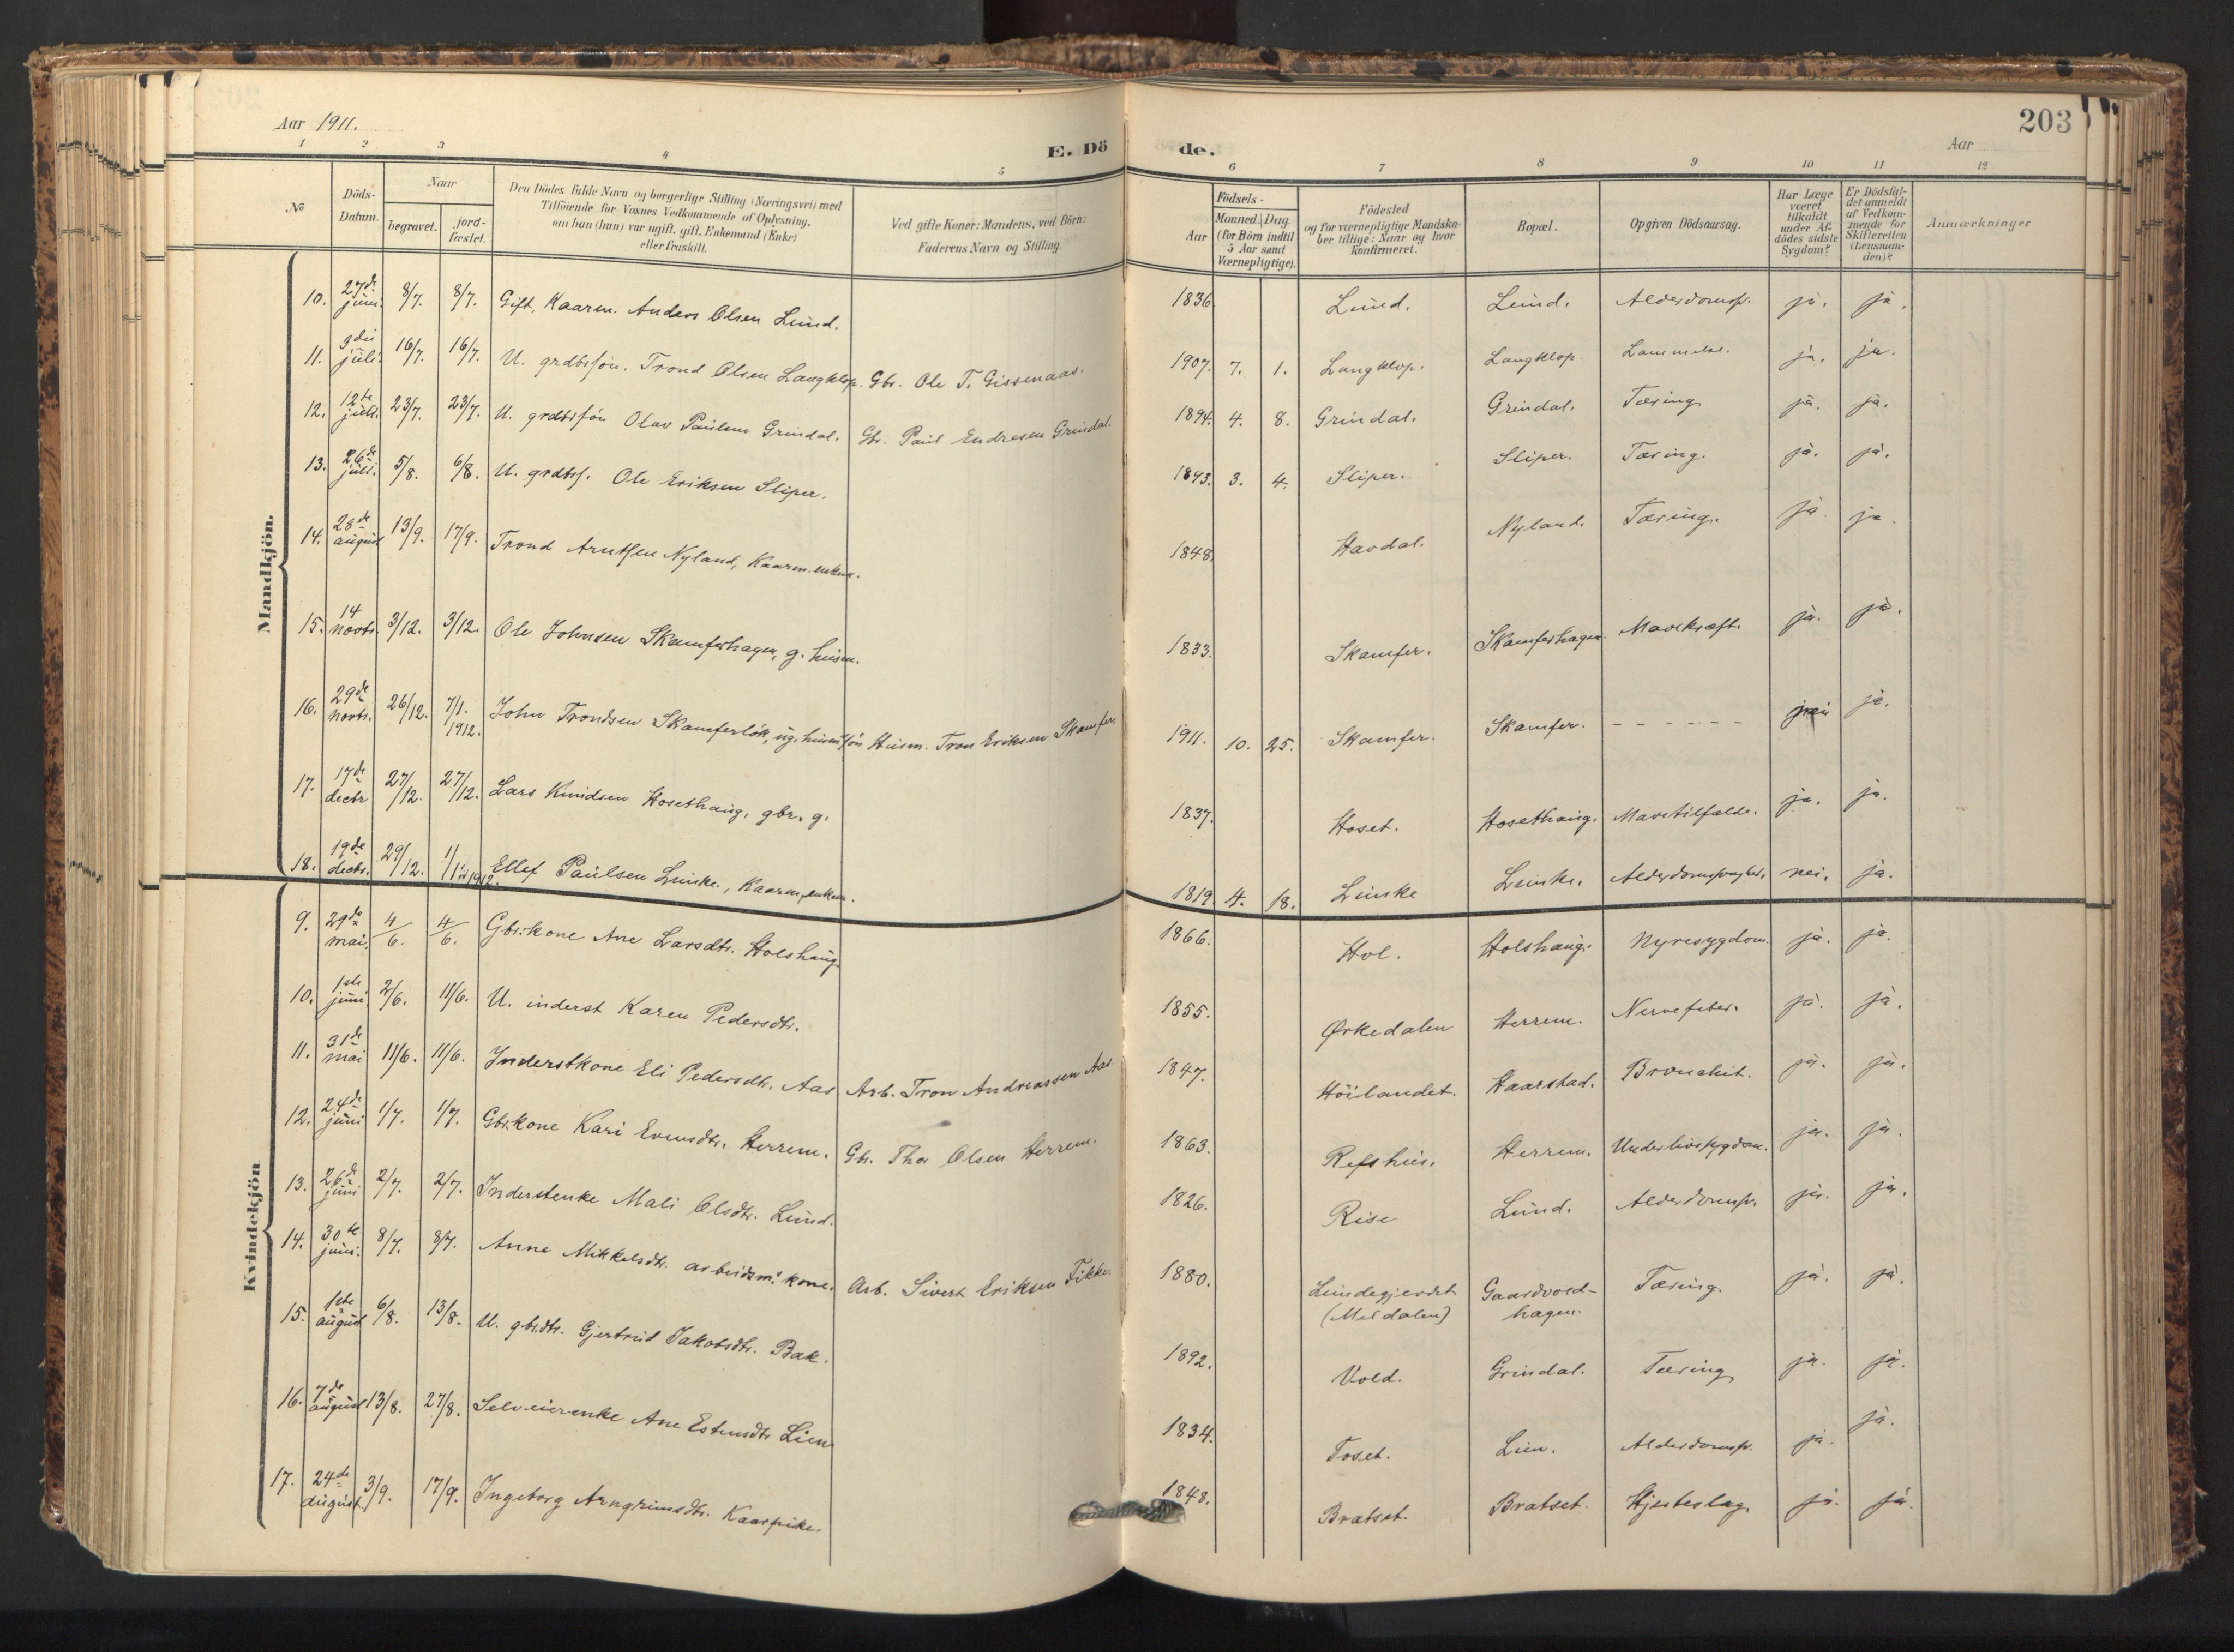 203
Aar 1911.
E. Dö de.
Aar
1 2 3 4 5 6 7 8 9 10 11 12
No
Döds-Datum.
Naar
begravet.
jord-fæstet.
Den Dödes fulde Navn og borgerlige Stilling (Næringsvei) med
Tilföiende for Voxnes Vedkommende af Oplysning,
om han (hun) var ugift, gift, Enkemand (Enke)
eller fraskilt.
Ved gifte Koner: Mandens, ved Börn:
Faderens Navn og Stilling.
Födsels-
Aar
Maaned. Dag.
(for Börn indtil
5 Aar samt
Værnepligtige).
Födested
og for værnepligtige Mandska-
ber tillige: Naar og hvor
konfirmeret.
Bopæl.
Opgiven Dödsaarsag.
Har Læge
været
tilkaldt
under Af-
dödes sidste
Sygdom?
Er Dödsfal-
det anmeldt
af Vedkom-
mende for
Skifteretten
(Lensman-
den)?
Anmærkninger
Mandkjön.
10. 27de juni. 8/7. 8/7. Gift, Kaarm. Anders Olsen Lund. 1836 Lund. Lund. Alderdomssv. ja. ja.
11. 9de juli. 16/7. 16/7. U. grdbrsön. Trond Olsen Langklop. Gbr. Ole T. Gissenaas. 1907. 7. 1. Langklop. Langklop. Lammelse. ja. ja.
12. 12te juli. 23/7. 23/7. U. grdbrsön Olav Paulsen Grindal. Gbr. Paul Endresen Grindal. 1894. 4. 8. Grindal. Grindal. Tæring ja. ja.
13. 26de juli. 5/8. 6/8. U. grdbrs. Ole Eriksen Sliper. 1893. 3. 4. Sliper. Sliper. Tæring. ja. ja.
14. 28de august 13/9. 17/9. Trond Arntsen Nyland, Kaarm. enkem. 1848. Havdal. Nyland. Tæring. ja. ja.
15. 14 novbr. 3/12. 3/12. Ole Johnsen Skamferhagen, g. husm. 1833. Skamfer. Skamferhagen. Mavekræft. ja. ja.
16. 29de novbr. 26/12. 7/1. 1912. John Trondsen Skamferlök, ug. husm.sön Husm. Tron Eriksen Skamfer. 1911. 10. 25. Skamfer. Skamfer. - - - - - - nei ja.
17. 17de decbr 27/12. 27/12. Lars Knudsen Hosethaug, gbr. g. 1837. Hoset. Hosethaug. Mavetilfælde. ja. ja.
18. 19de decbr. 29/12. 1/1 1912. Ellef Paulsen Lunke, Kaarm, enkem. 1819 4. 18. Lunke Lunke. nei. ja.
Kvindekjön
9. 29de mai. 4/6. 4/6. Gbr.kone Ane Larsdtr. Holshaug 1866. Hol. Holshaug. Nyresygdom. ja. ja.
10. 1ste juni 2/6. 11/6. U. inderst Karen Pedersdtr. 1855. Ørkedalen Herrem. Nervefeber. ja. ja.
11. 31de mai 11/6. 11/6. Inderstkone Eli Pedersdtr. Aas Arb. Tron Andreassen Aas. 1847. Höilandet. Haarstad. Bronchit. ja. ja.
12. 24de juni 1/7. 1/7. Gbr.kone Kari Evensdtr. Herrem. Gbr. Thor Olsen Herrem. 1863. Refshus. Herrem. Underlivssygdom. ja. ja.
13. 26de juni 2/7. 2/7. Inderstenke Mali Olsdtr. Lund. 1826. Rise Lund. Alderdomssv. ja. ja.
14. 30te juni. 8/7. 8/7. Anne Mikkelsdtr. arbeidsm. kone. Arb. Sivert Eriksen Fikke. 1880. Lundegjerdet (Meldalen) Gaardvoldhagen. Tæring. ja. ja.
15. 1ste august 6/8. 13/8. U. gbr.dtr. Gjertrud Jakobsdtr. Bak. 1892. Vold. Grindal. Tæring ja. ja.
16. 7de august 13/8. 27/8. Selveierenke Ane Estensdtr Lien 1834. Toset. Lien. Alderdomssv. ja. ja.
17. 24de august. 3/9. 17/9. Ingeborg Arngrimsdtr. Kaarpike. 1848. Bratset. Bratset. Hjerteslag. ja. ja.